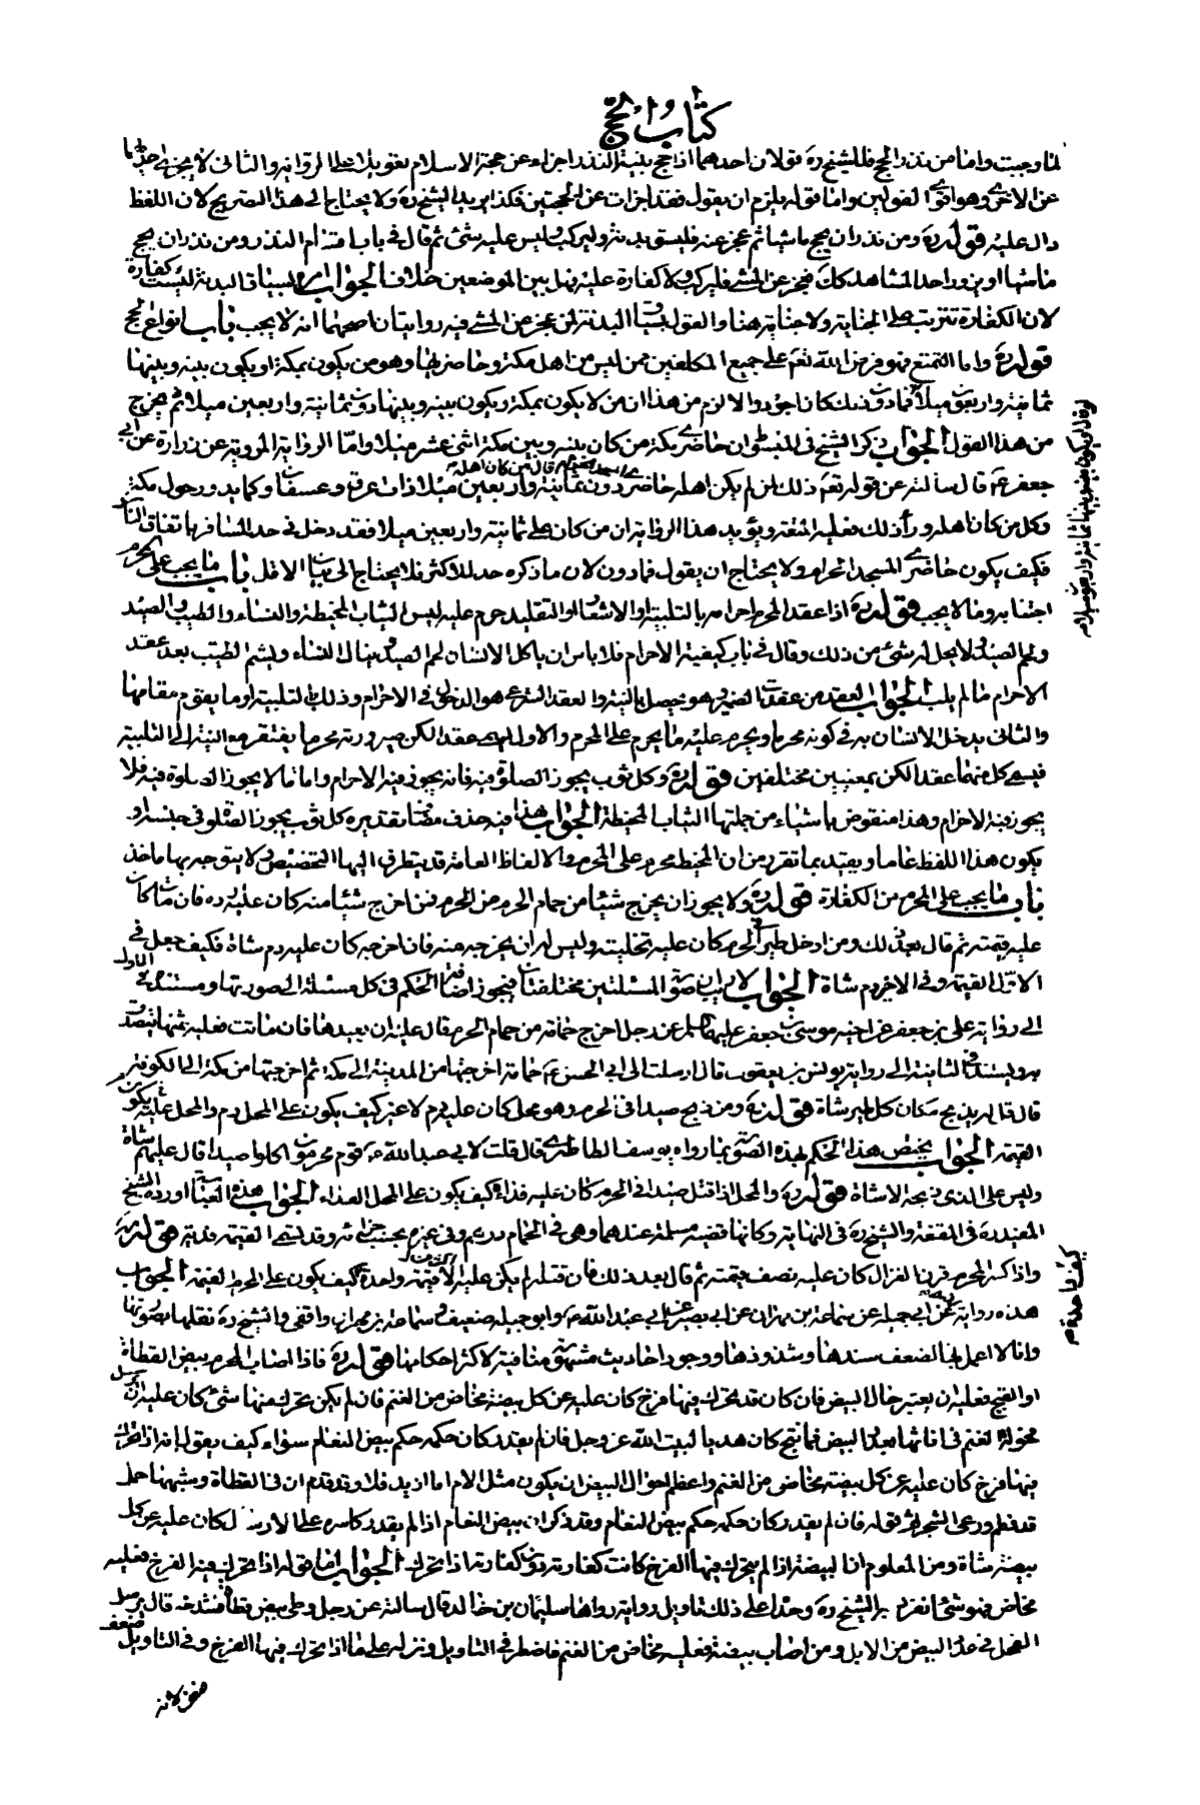 كتاب الحج
لما وجبت واما من نذر الحج فللشيخ ره قولان احدهما اذا حج بنية النذر اجزاء عن حجة الاسلام تعويلا على الرواية والثانى لا يجزى احدهما
عن الاخرى وهو اقوى القولين واما قوله يلزم ان يقول فقد اجزات عن الحجتين فكذا يريد الشيخ ره ولا يحتاج الى هذا التصريح لان اللفظ
دال عليه قوله ره ومن نذر ان يحج ماشيا ثم عجز عنه فليسق بدنة وليركب وليس عليه شئ ثم قال فى باب النذر ومن نذر ان يحج
ماشيا او يزور احد المشاهد كك فعجز عن المشى فليركب ولا كفارة عليه فما بين الموضعين خلاف الجواب سياق البدنة ليست كفارة
لان الكفارة تترتب على الجناية ولا جناية هنا والقول بسياق البدنة لمن عجز عن المشى فيه روايتان اصحهما انه لا يجب باب انواع الحج
قوله ره واما التمتع فهو فرض الله تعم على جميع المكلفين ممن ليس من اهل مكة وحاضريها وهو من يكون بمكة او يكون بينه وبينها
ثمانية واربعون ميلا فمادون ذلك كان اجود والا لزم من هذا ان من لا يكون بمكة ويكون بينه وبينها دون ثمانية واربعين ميلا ثم يخرج
من هذا القول الجواب ذكر الشيخ فى المبسوط ان حاضرى مكة من كان بينه وبين مكة اثنى عشر ميلا واما الرواية المروية عن زرارة عن ابى
جعفر ع قال سالته عن قوله تعم ذلك لمن لم يكن اهله حاضرى المسجد الحرام قال من كان اهله دون ثمانية واربعين ميلا ذات عرق وعسفان وكما يدور حول مكة
وكل من كان اهله وراء ذلك فعليه المتعة ويؤيد هذا الرواية ان من كان على ثمانية واربعين ميلا فقد دخل فى حد المسافر باتفاق الناس
فكيف يكون حاضرى المسجد الحرام ولا يحتاج ان يقول فمادون لان ما ذكره حد للاكثر فلا يحتاج الى بيان الاقل باب ما يجب على المحرم
اجتنابه وما لا يجب قوله ره اذا عقد المحرم احرامه بالتلبية او الاشعار او التقليد حرم عليه لبس الثياب المخيطة والنساء والطيب والصيد
ولحم الصيد لا يحل له شئ من ذلك وقال فى باب كيفية الاحرام فلا باس ان ياكل الانسان لحم الصيد وينال النساء ويشم الطيب بعد عقد
الاحرام ما لم يلب الجواب العقد من عقدت الضمير وهو حيصل بالنية والعقد الشرعى هو الدخول فى الاحرام وذلك بالتلبية او ما يقوم مقامها
والثانى يدخل الانسان به فى كونه محرما ويحرم عليه ما يحرم على المحرم والاول يسمى عقدا لكن صيرورته محرما يفتقر مع النية الى التلبية
فيسمى كل منهما عقدا لكن بمعنيين مختلفين قوله ره وكل ثوب يجوز الصلوة فيه فانه يجوز فيه الاحرام واما ما لا يجوز الصلوة فيه فلا
يجوز فيه الاحرام وهذا منقوض باشياء من جملتها الثياب المخيطة الجواب هذا فيه حذف مضاف تقديره كل ثوب يجوز الصلوة فى جنسه او
يكون هذا اللفظ عاما ويقيد بما تقرر من ان المخيط محرم على المحرم والالفاظ العامة قد يتطرق اليها التخصيص ولا يتوجه بها ماخذ
باب ما يجب على المحرم من الكفارة قوله ره ولا يجوز ان يخرج شيئا من حمام الحرم من الحرم فمن اخرج شيئا منه كان عليه رده فان مات كان
عليه قيمته ثم قال بعد ذلك ومن ادخل طيرا الحرم كان عليه تخليته وليس له ان يخرجه منه فان اخرجه كان عليه دم شاة فكيف جعل فى
الاول القيمة وفى الاخير دم شاة الجواب لا ريب ان صورة المسئلتين مختلفتان فيجوز اضافة الحكم فى كل مسئلة الى صورتها ومستنده فى الاولى
الى رواية على بن جعفر عن اخيه موسى بن جعفر عليهما السلم عن رجل اخرج حمامة من حمام الحرم قال عليه ان يعيدها فان ماتت فعليه ثمنها يتصدق
به ويستند فى الثانية الى رواية يونس بن يعقوب قال ارسلت الى ابى الحسن ع حمامة اخرجتها من المدينة الى مكة ثم اخرجتها من مكة الى الكوفة
قال قال يذبح مكان كل طير شاة قوله ره ومن ذبح صيدا فى الحرم وهو محل كان عليه دم لا غير كيف يكون على المحل دم والمحل عليه يكون
القيمة الجواب يختص هذا الحكم بهذه الصورة بما رواه يوسف الطاطرى قال قلت لابى عبد الله ع قوم محرمون اكلوا صيدا قال عليهم شاة
وليس على الذى ذبحه الا شاة قوله ره والمحل اذا قتل صيدا فى الحرم كان عليه فداؤه كيف يكون على المحل الفداء الجواب هذه العبارة اوردها الشيخ
المفيد ره فى المقنعة والشيخ ره فى النهاية وكانها قضية مسلمة عندهما وهى فى الحمام درهم وفى غيره بحسب جزائه وقد تسمى القيمة فدية قوله ره
واذا كسر المحرم قرن الغزال كان عليه نصف قيمته ثم قال بعد ذلك فان قتله لم يكن عليه الا قيمة واحدة كيف يكون على المحرم القيمة الجواب
هذه رواية عن ابى جميلة عن سماعة بن مهران عن ابى بصير عن ابى عبد الله ع وابو جميلة ضعيف وسماعة بن مهران واقفى والشيخ ره نقلها بصورتها
وانا لا اعمل بها لضعف سندها وشذوذها ووجود احاديث مشهورة منافية لاكثر احكامها قوله ره فاذا اصاب المحرم بيض القطاة
او القبج فعليه ان يعتبر حال البيض فان كان قد تحرك فيها فرخ كان عليه عن كل بيضة مخاض من الغنم فان لم يكن تحرك منها شئ كان عليه ان يرسل
فحولة الغنم فى اناثها بعدد البيض فما نتج كان هديا لبيت الله عز وجل فان لم يقدر كان حكمه حكم بيض النعام سواء كيف يقول انه اذا تحرك
فيها فرخ كان عليه عن كل بيضة مخاض من الغنم واعظم احوال البيض ان يكون مثل الام اما ازيد فلا وقد قدم ان فى القطاة وشبهها حمل
قد فطم ورعى الشجر ثم قوله فان لم يقدر كان حكمه حكم بيض النعام وقد ذكر ان بيض النعام اذا لم يقدر كاسره على الارسال كان عليه عن كل
بيضة شاة ومن المعلوم ان البيضة اذا لم يتحرك فيها الفرخ كانت كفارته دون كفارته اذا تحرك الجواب اما قوله اذا تحرك فيه الفرخ فعليه
مخاض فهو شئ انفرد به الشيخ ره وحمله على ذلك تاويل رواية رواها سليمان بن خالد قال سالته عن رجل وطى بيض قطاة فشدخه قال يرسل
الفحل فى عدد البيض من الابل ومن اصاب بيضة فعليه مخاض من الغنم فاضطر فى التاويل ونزله على ما اذا تحرك فيها الفرخ وفى التاويل ضعف